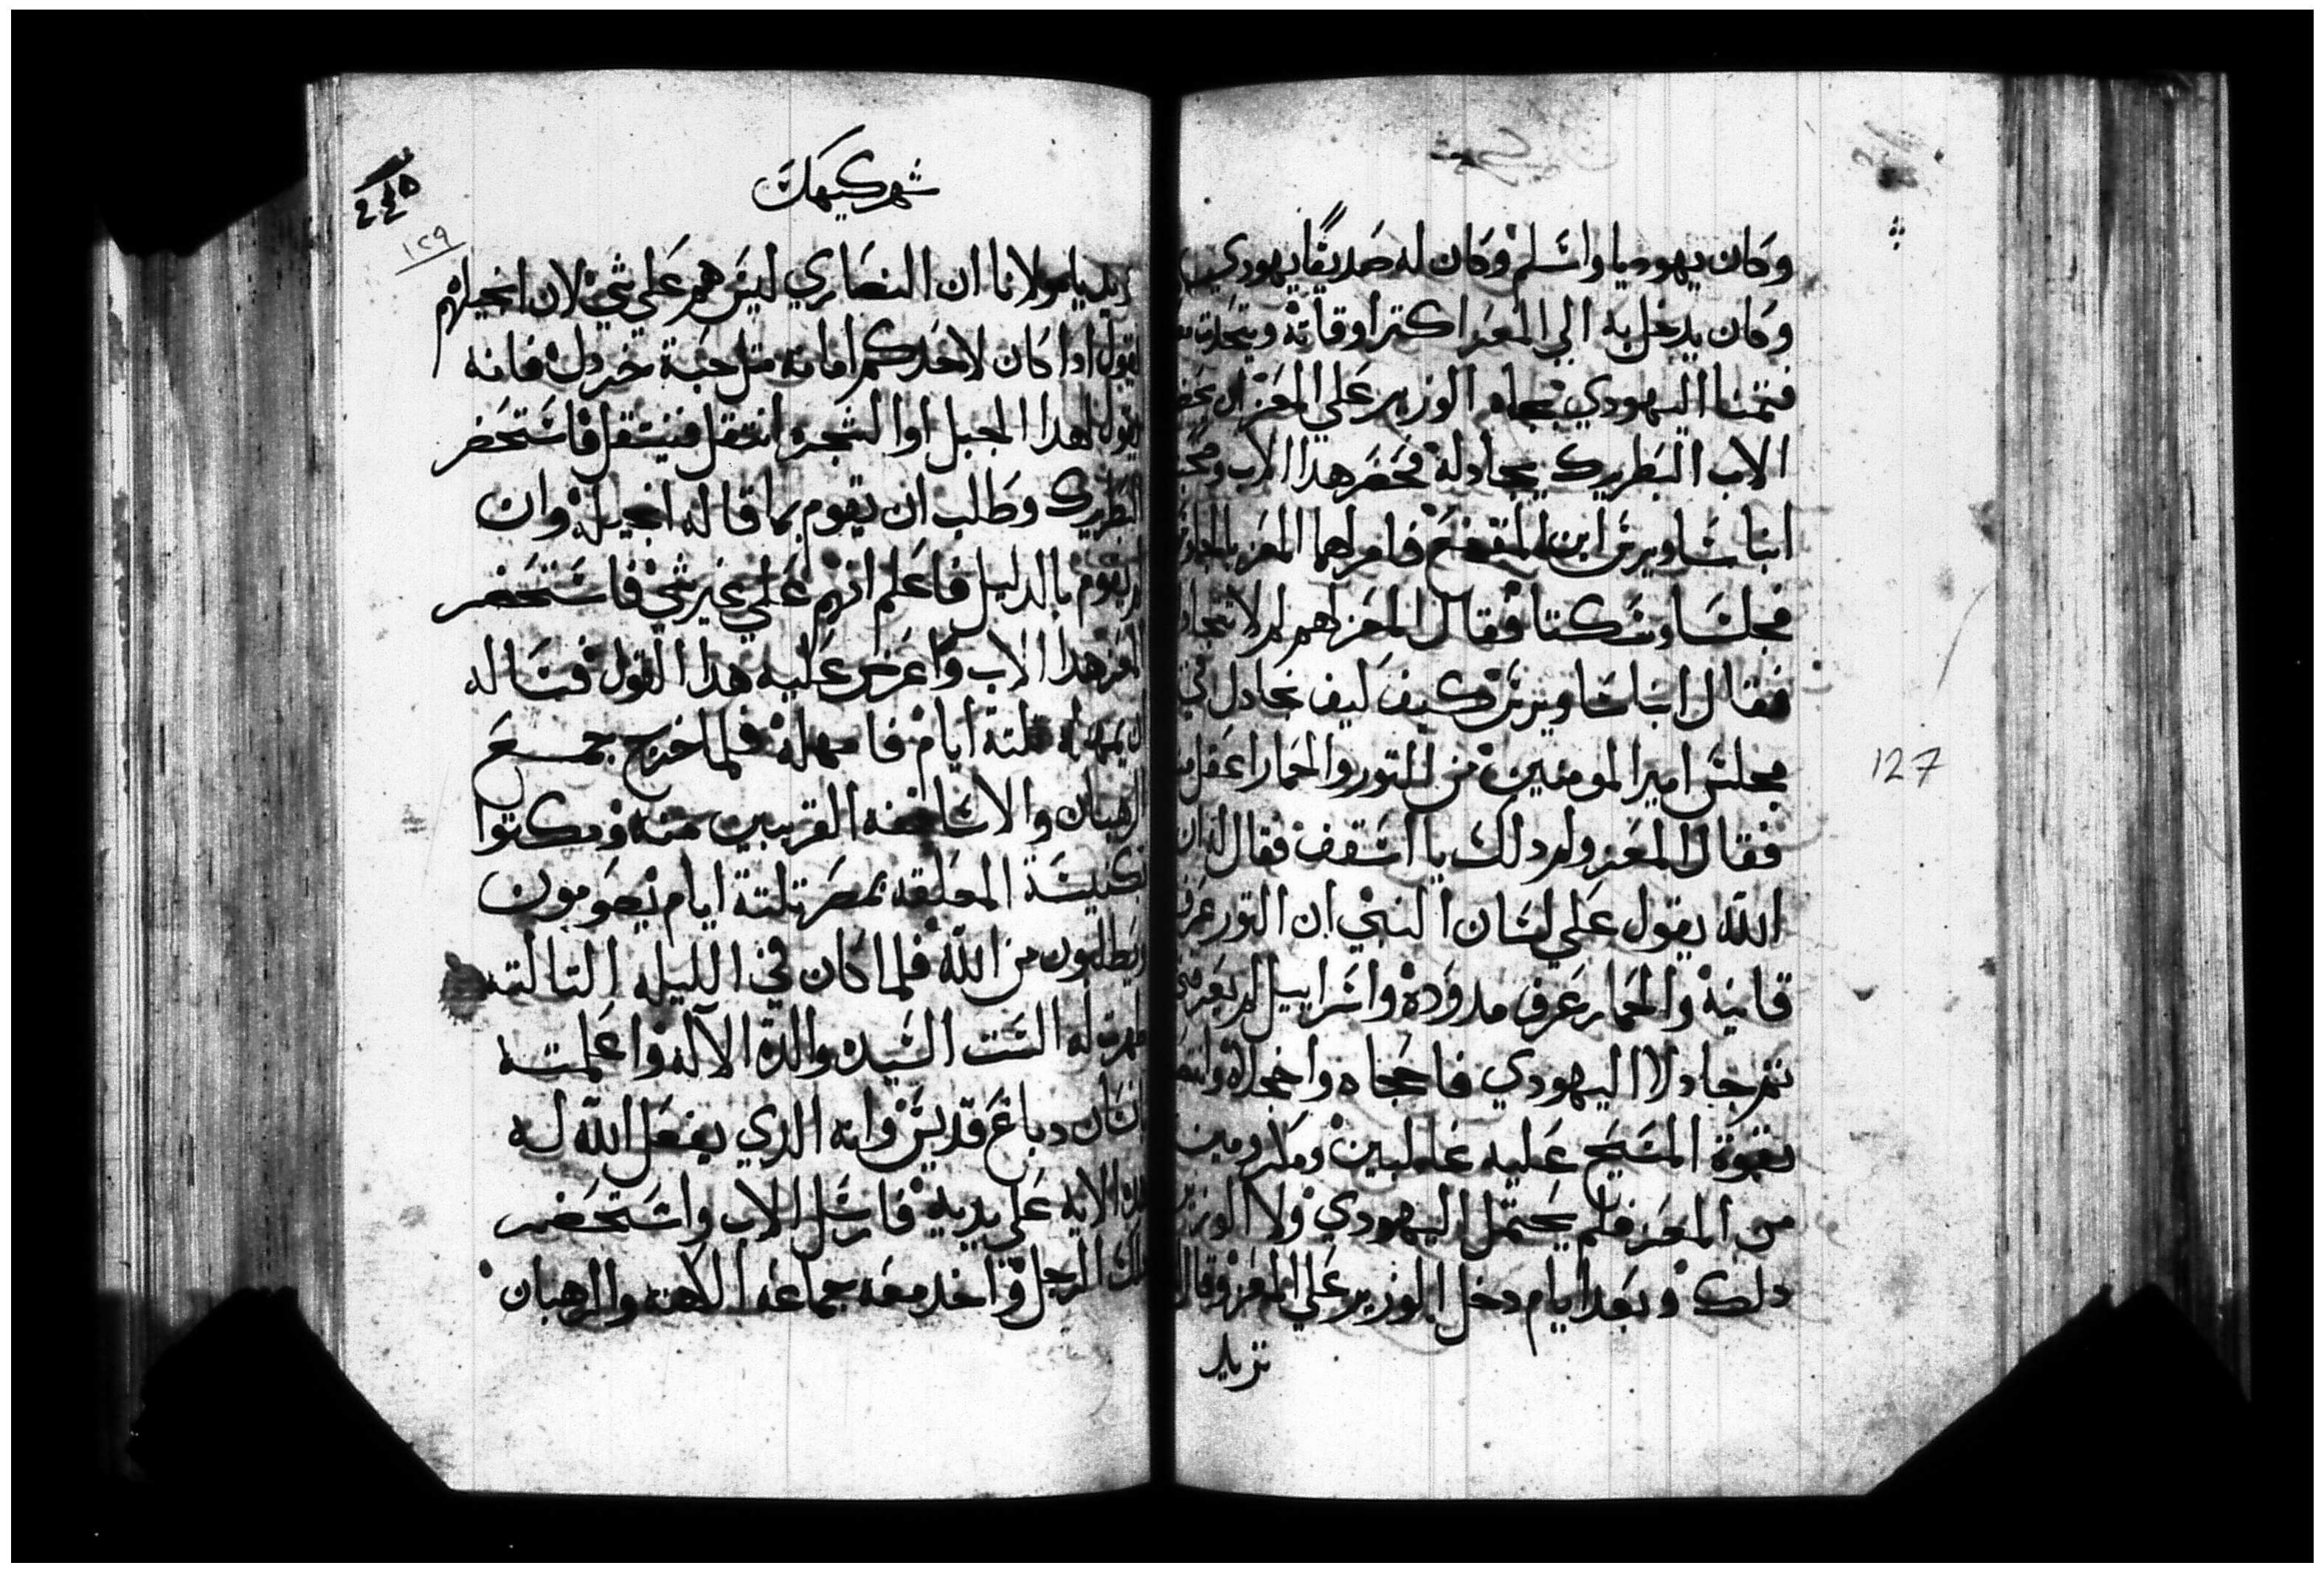 وكان يهوديا واسلم وكان له صديقًا يهودي
وكان يدخل به الي المعز اكتر اوقاته ويتحدت
فتمنا اليهودي بجاه الوزير علي المعز ان
الاب البطريرك يجادله فحضر هدا الاب
انبا ساويرس ابن المقفع فامرهما المعز
فجلسا وسكتا فقال المعز لهم لم لا
فقال انبا ساويرس كيف ليف نجادل في
مجلس امير المومنين من التور والحمار اعقل
فقال المعز ولم دلك يا اسقف فقال له ان
الله يقول علي لسان النبي ان التور عرف
قانيه والحمار عرف مدوده واسراييل لم
تم جادلا اليهودي فاحجاه واخجلاه
بقوة المسيح عليه غالبين ومكرومين
من المعز فلم يحتمل اليهودي ولا الوزير
دلك وبعد ايام دخل الوزير علي المعز وقال
نزيد
127
شهر كيهك
١٢٩
نزيد يا مولانا ان النصاري ليس هم علي شي لان انجيلهم
يقول ادا كان لاحدكم امانه متل حبة خردل فانه
يقول لهدا الجبل او الشجره انتقل فينتقل فاستحضر
البطريرك وطلب ان يقوم بما قاله انجيله وان
لم يقوم بالدليل فاعلم انهم علي غير شي فاستحضر
المعز هدا الاب واعرض عليه هدا القول فساله
ان يمهله تلتة ايام فامهله فلما خرج جمع
الرهبان والاساقفه القريبين منه ومكتوا
بكنيسة المعلقه بمصر تلتة ايام يصومون
ويطلبون من الله فلما كان في الليله التالته
ظهرت له الست السيده والدة الاله واعلمته
انسان دباغ قديس وانه الدي يفعل الله له
هده الايه علي يديه فارسل الاب واستحضر
دلك الرجل واخد معه جماعه الكهنه والرهبان